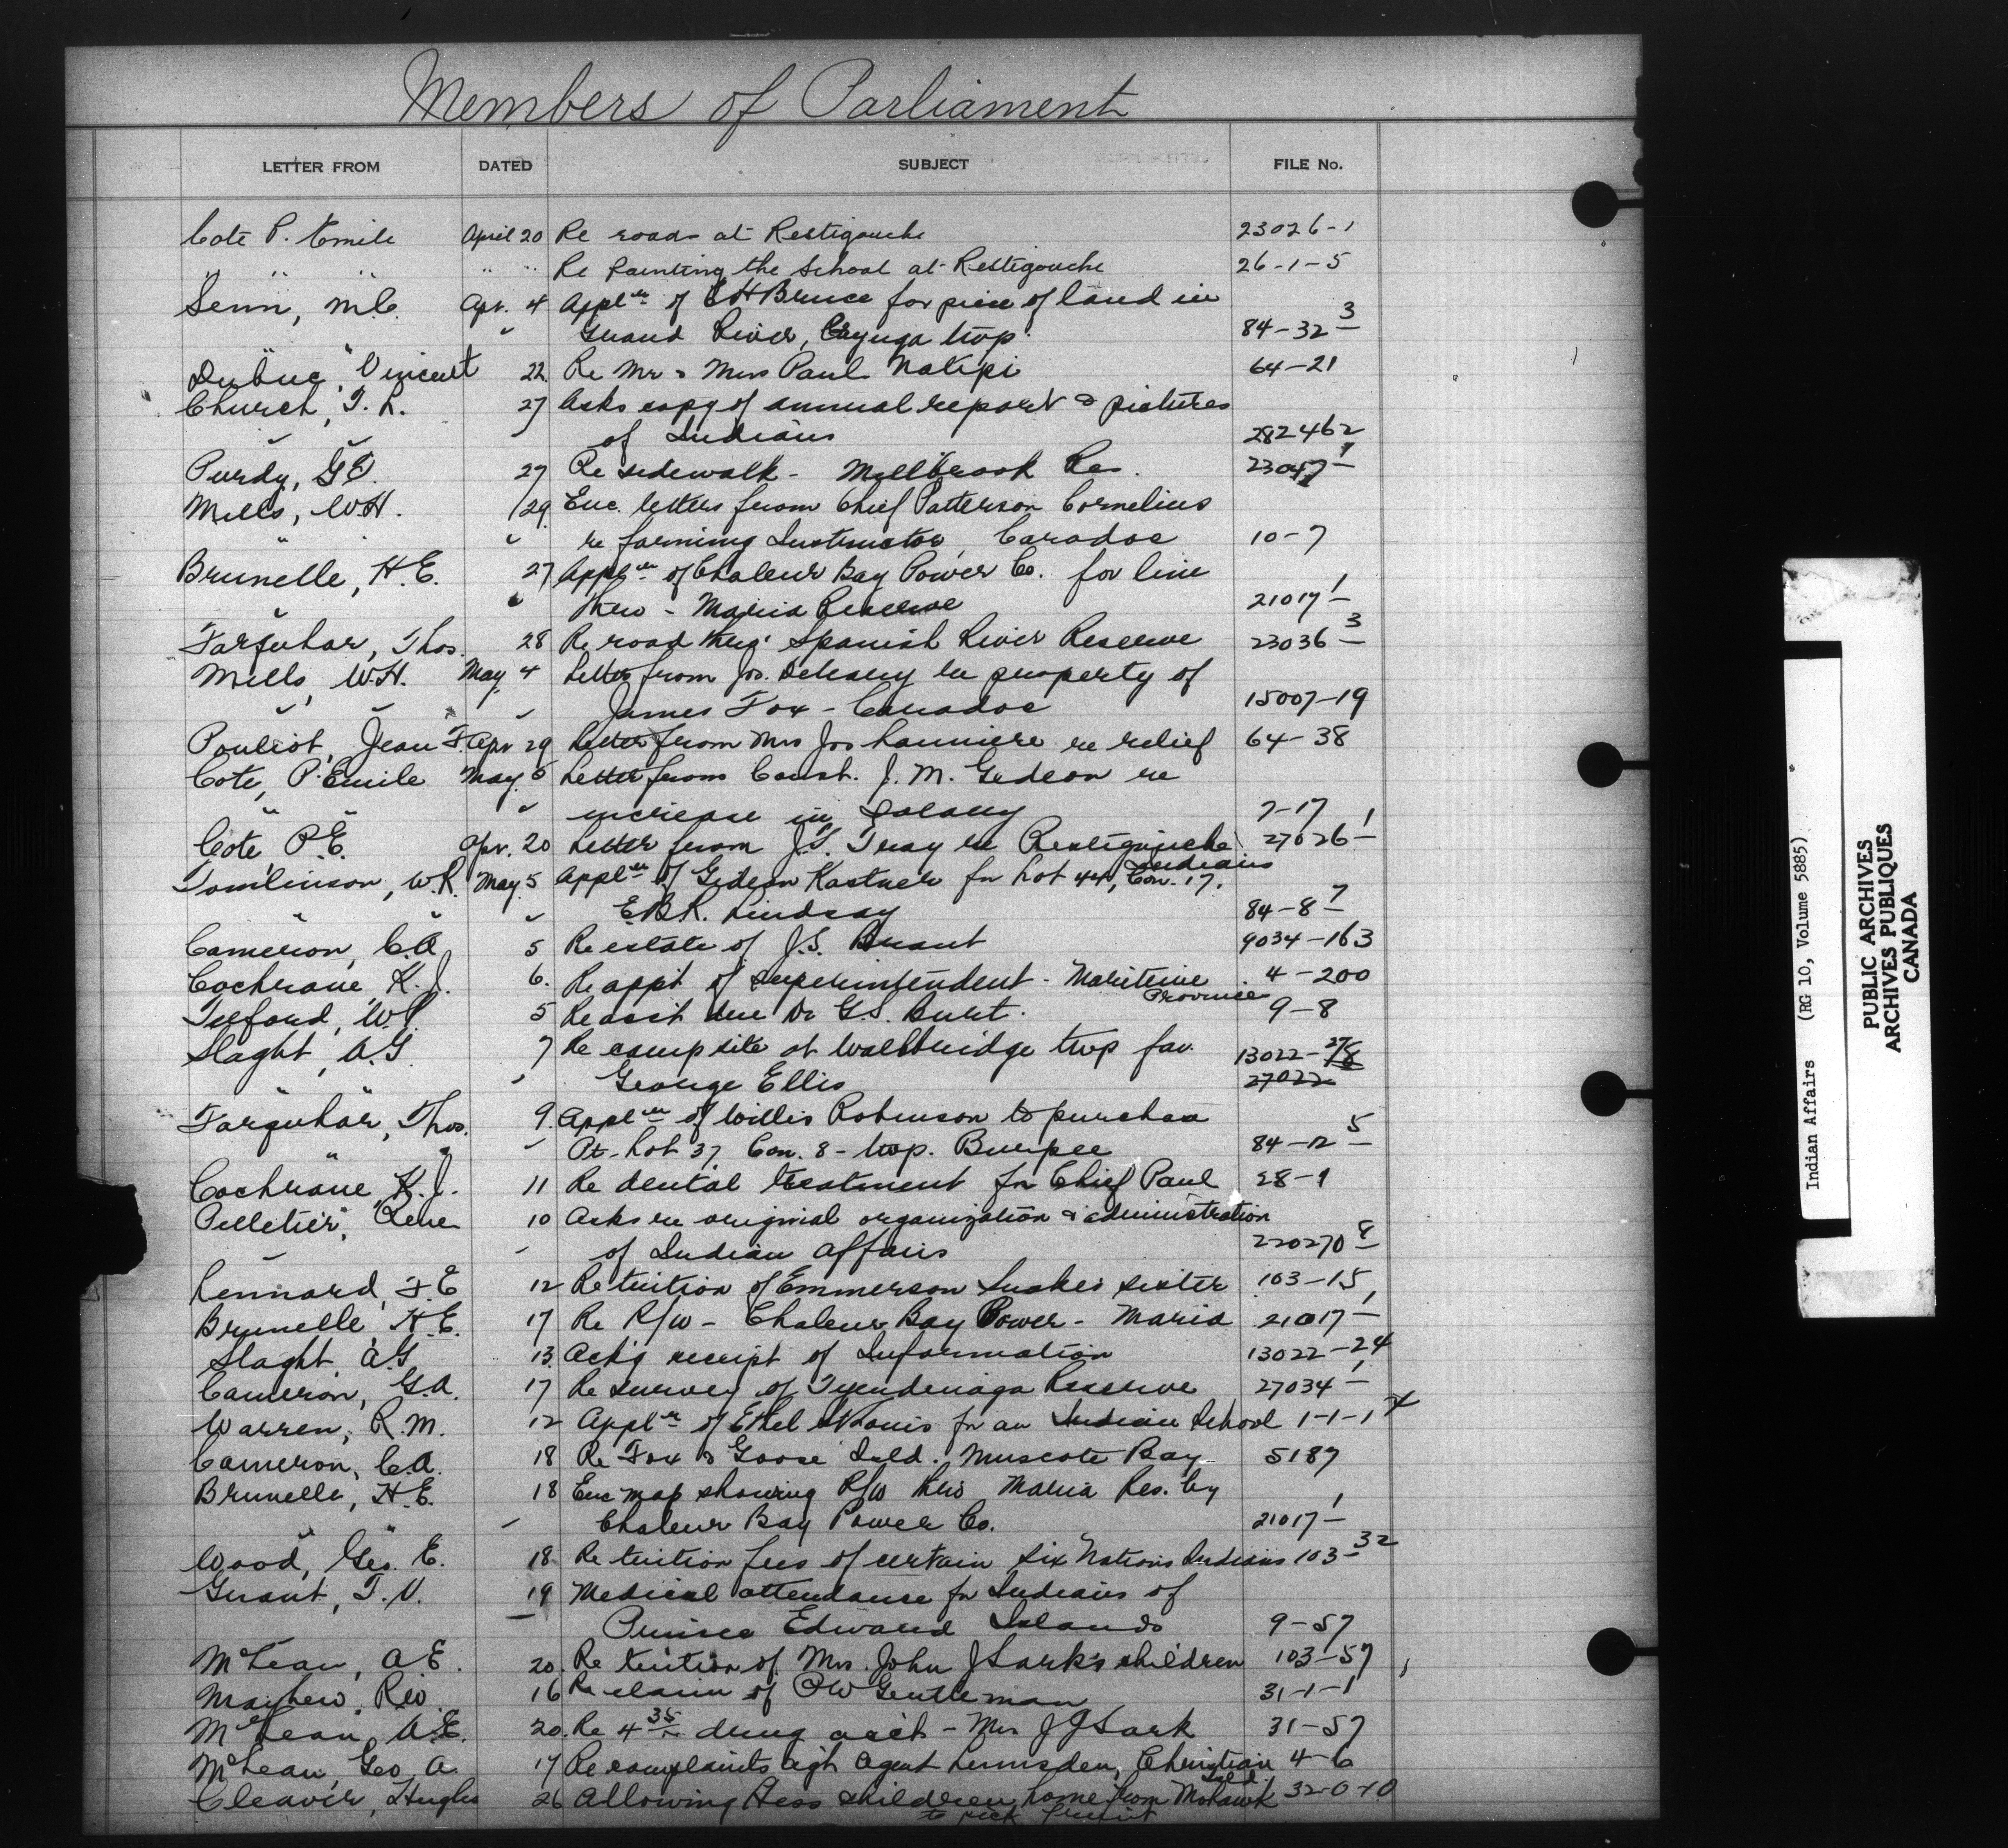 Members of Parliament
LETTER FROM DATED SUBJECT FILE No.
Cote P. Emile April 20 Re roads at Restigouche 23026-1
" " " " " Re Painting the School at Restigouche 26-1-5
Senn, M.C. Apr. 4 Appl'n of E H Bruce for piece of land in
" Grand River, Cayuga twp. 84-32 3
Dubuc, Vincent 22 Re Mr & Mrs Paul Natipi 64-21
Church, T. L. 27 Asks copy of annual report & pictures
" of Indians 282462
Purdy, G.T. 27 Re sidewalk - Millbrook Res. 23047-1
Mills, W.H. 29 Enc. letters from Chief Patterson Cornelius
" re farming Instructor, Caradoc 10-7
Brunelle, H.E. 27 Appl'n of Chaleur Bay Power Co. for line
" thru - Maria Reserve 21017-1
Farquhar, Thos. 28 Re road thru' Spanish River Reserve 23036-3
Mills, W.H. May 4 Letter from Jos. Deleary re property of
" James Fox - Caradoc 15007-19
Pouliot, Jean F. Apr 29 Letter from Mrs Jos Launiere re relief 64-38
Cote, P. Emile May 5 Letter from Const. J. M. Gedeon re
" increase in Salary 7-17
Cote, P.E. Apr. 20 Letter from J.T. Gray re Restigouche 27026-1
Indians
Tomlinson, W.R. May 5 Appl'n of Gideon Kastner for Lot 44, Con. 17,
" E.B.R. Lindsay 84-8-7
Cameron, C.A. 5 Re estate of J.S. Brant 9034-163
Cochrane, K.J. 6. Re appt of Superintendent - Maritime 4-200
Province
Telford, W.P. 5 Re acct due Dr G.S. Burt. 9-8
Slaght, A.G. 7 Re camp site at Wallbridge twp fav. 13022-27/8
" George Ellis 27022
Farquhar, Thos. 9. Appl'n of Willis Robinson to purchase
" Pt. Lot 37, Con. 8 - twp. Burpee 84-12-5
Cochrane, K.J. 11 Re dental treatment for Chief Paul 28-9
Pelletier, Rene 10 Asks re original organization & administration
" of Indian Affairs 220270-8
Lennard, F.E. 12 Re tuition of Emmerson Snake's sister 103-15
Brunelle, H.E. 17 Re R/W - Chaleur Bay Power - Maria 21017-1
Slaght, A.G. 13. Ack'g receipt of Information 13022-24
Cameron, G.A. 17 Re survey of Tyendenaga Reserve 27034-1
Warren, R.M. 12 Appl'n of Ethel St Louis for an Indian School 1-1-1 4
Cameron, C.A. 18 Re Fox & Goose Isld. Muscote Bay 5187
Brunelle, H.E. 18 Enc map showing R/W thru Maria Res. by
" Chaleur Bay Power Co. 21017-1
Wood, Geo. E. 18 Re tuition fees of certain Six Nations Indians 103-32
Grant, T.V. 19 Medical attendance for Indians of
" Prince Edward Islands 9-57
McLean, A.E. 20. Re tuition of Mrs. John J Sark's children 103-57
Mayhew, R.W. 16 Re claim of P W Gentleman 31-1-1
McLean, A.E. 20. Re 4 35 drug acct - Mrs J J Sark 31-57
McLean, Geo A. 17 Re complaints agst Agent Lumsden, Christian 4-6
Isld.
Cleaver, Hughes 26 Allowing Hess children home from Mohawk 32-0-10
to pick fruit
Indian Affairs (RG 10, Volume 5885)
PUBLIC ARCHIVES
ARCHIVES PUBLIQUES
CANADA